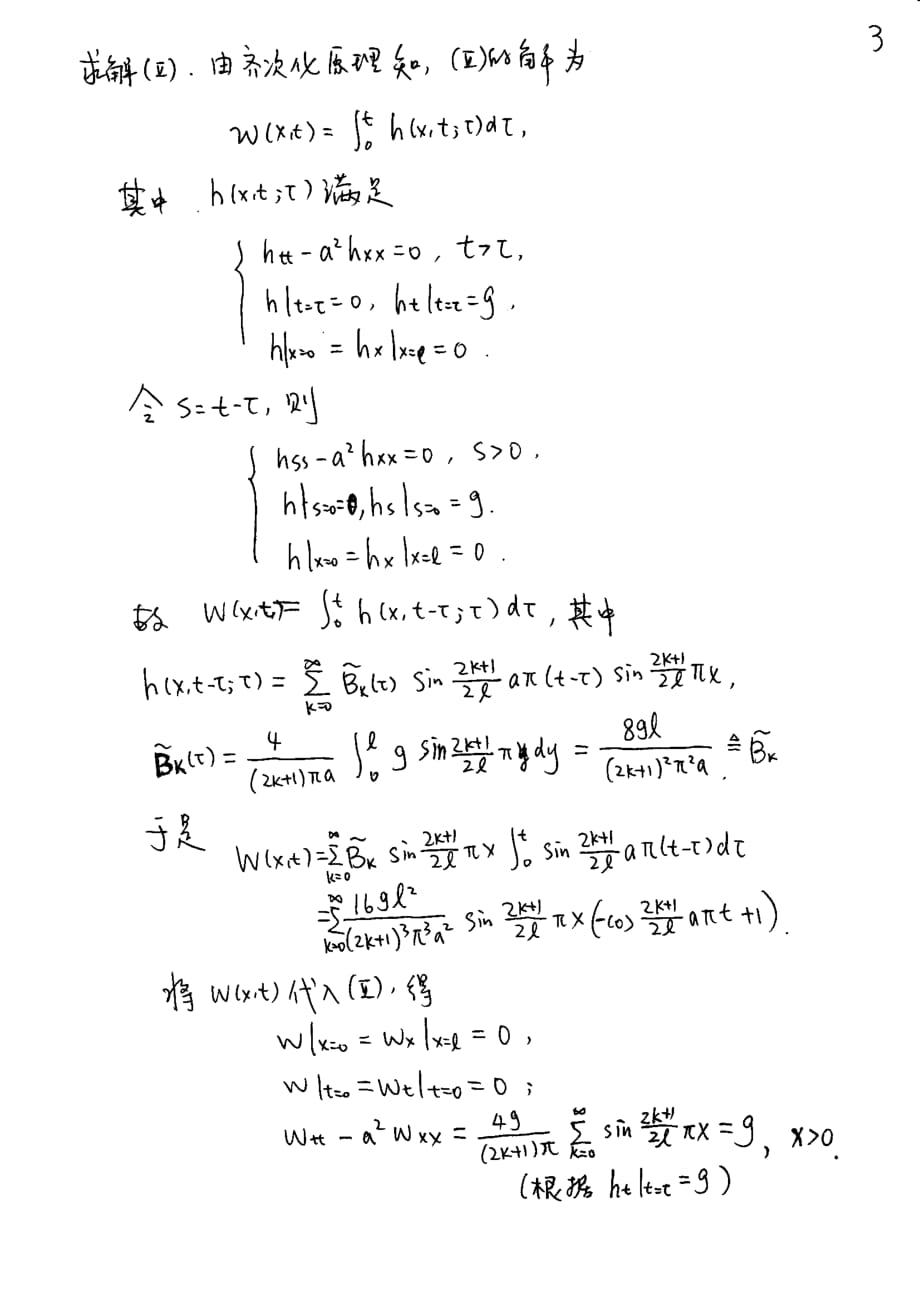 3
求解(Ⅱ). 由齐次化原理知, (Ⅱ)的解为
w(x,t) = ∫₀ᵗ h(x,t;τ)dτ,
其中 h(x,t;τ)满足
{ h_tt - a²h_xx = 0, t>τ,
h|t=τ = 0, h_t|t=τ = g,
h|x=0 = h_x|x=l = 0.
令 s=t-τ, 则
{ h_ss - a²h_xx = 0, s>0,
h|s=0=0, h_s|s=0 = g.
h|x=0 = h_x|x=l = 0.
故 w(x,t) = ∫₀ᵗ h(x,t-τ;τ)dτ, 其中
h(x,t-τ;τ) = Σ_{k=0}^{∞} B̃_k(τ) sin (2k+1)/(2l) aπ(t-τ) sin (2k+1)/(2l) πx,
B̃_k(τ) = 4/((2k+1)πa) ∫₀ˡ g sin (2k+1)/(2l) πy dy = 8gl/((2k+1)²π²a) ≜ B̃_k
于是 w(x,t) = Σ_{k=0}^{∞} B̃_k sin (2k+1)/(2l) πx ∫₀ᵗ sin (2k+1)/(2l) aπ(t-τ)dτ
= Σ_{k=0}^{∞} 16gl²/((2k+1)³π³a²) sin (2k+1)/(2l) πx (-cos (2k+1)/(2l) aπt +1).
将 w(x,t) 代入(Ⅱ), 得
w|x=0 = w_x|x=l = 0,
w|t=0 = w_t|t=0 = 0;
w_tt - a²w_xx = 4g/((2k+1)π) Σ_{k=0}^{∞} sin (2k+1)/(2l) πx = g, x>0.
(根据 h_t|t=τ = g)